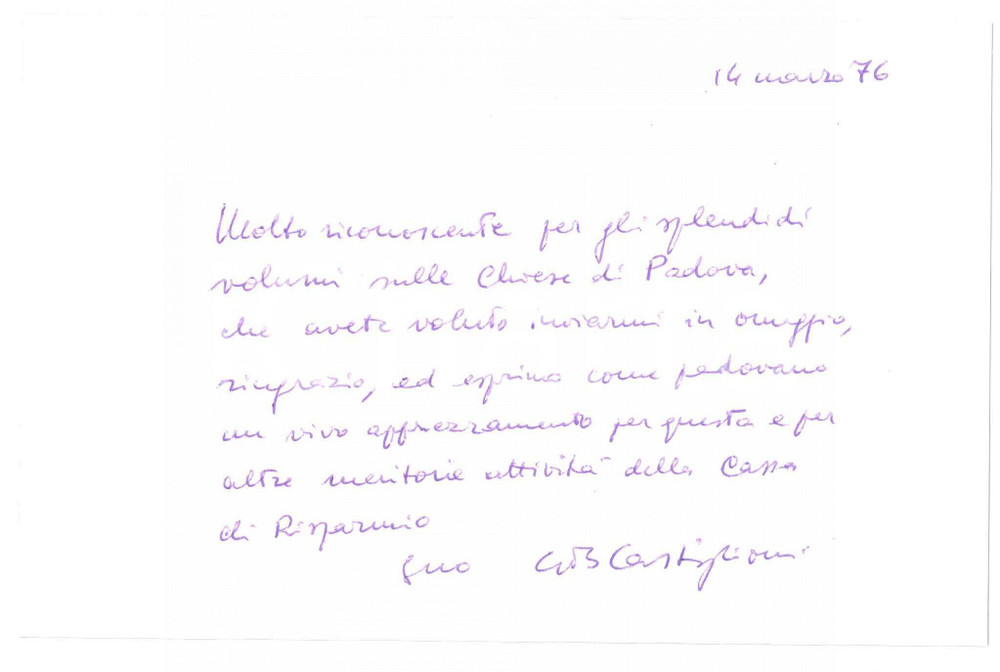 14 marzo 76
Molto riconoscente per gli splendidi
volumi sulle Chiese di Padova,
che avete voluto inviarmi in omaggio,
ringrazio, ed esprimo come padovano
un vivo apprezzamento per questa e per
altre meritorie attività della Cassa
di Risparmio
suo GB Castiglioni